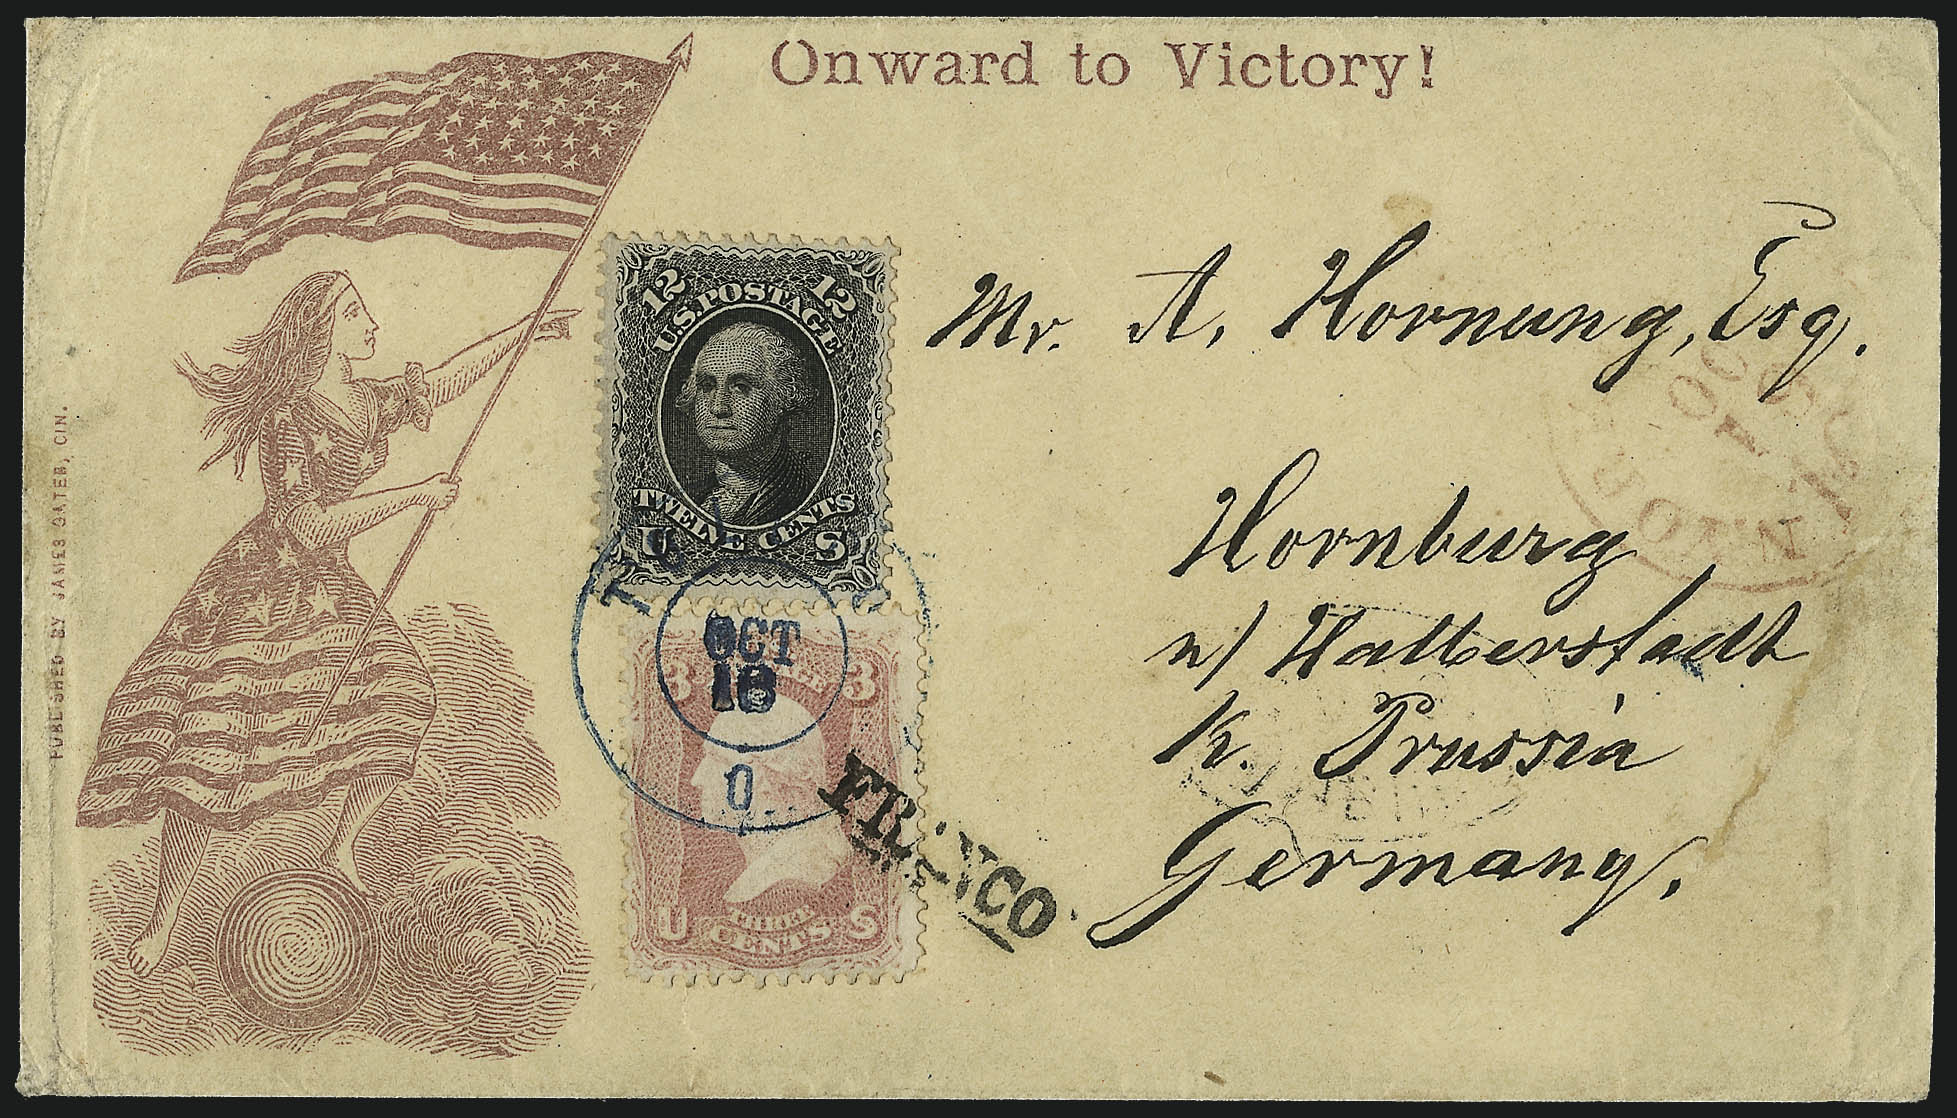 Onward to Victory!
PUBLISHED BY JAMES GATES, CIN.
12 12
U.S. POSTAGE
TWELVE CENTS
U S
OCT
18
O.
3 3
U S
THREE
CENTS
FRANCO
Mr. A. Hornung, Esq.
Hornburg
n/ Halberstadt
K. Prussia
Germany.